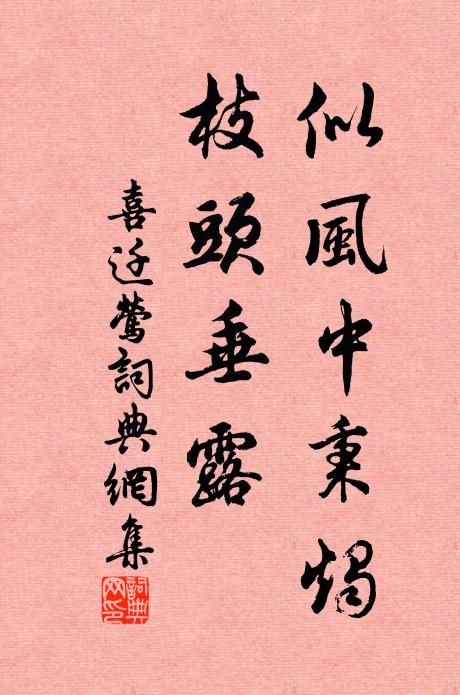 似風中秉燭
枝頭垂露
喜迁鶯詞典網集
詞典網印